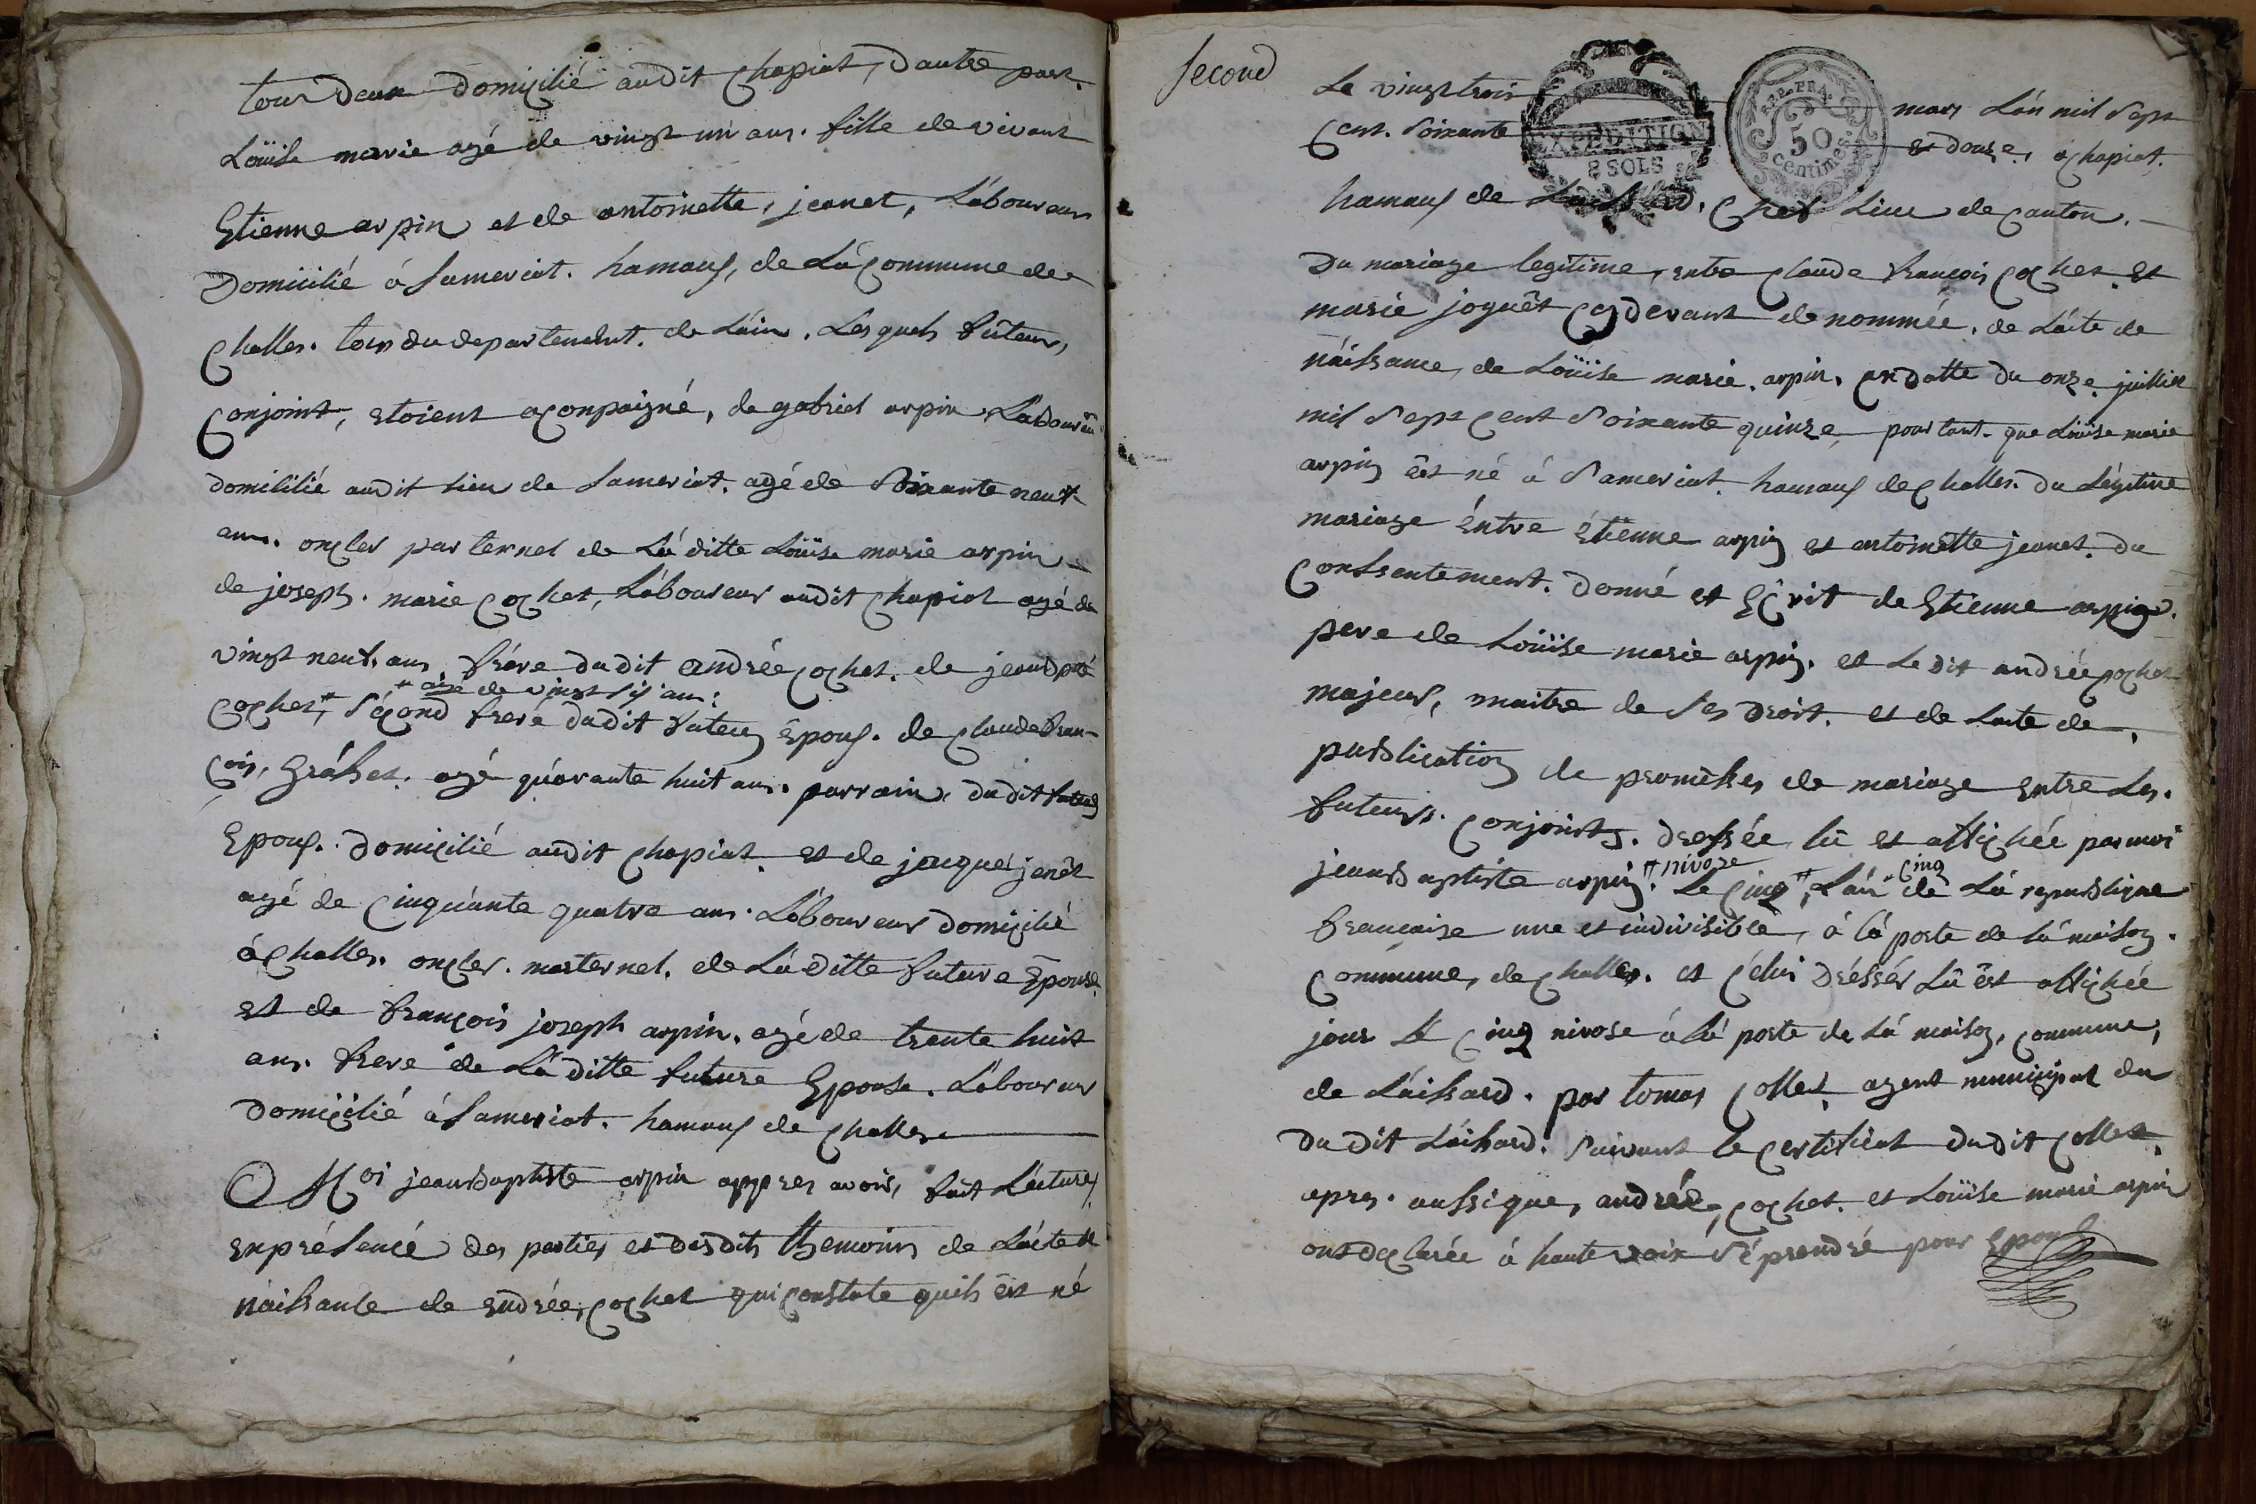 tous deux domicilié audit chapiat, dautre part.
Loüise marie agé de vingt un ans. fille de vivant
Etienne arpin et de antoinette, jeanet, Laboureur
Domicilié á Sameriat. hamaux, de Lá Commune de
Challes. tous du departement. de Láin. Les quels futeurs
Conjoint, etoient aconpaigné, de gabriel arpin Laboureur
domicilié audit lieu de Sameriat. agé de Soixante neuf
ans. oncles paternel de Lá ditte Loüise marie arpin
de joseph. marie cochet, Láboureur audit Chapiat agé de
vingt neuf. ans frére dudit andrée cochet. de jean
* agé de vingt six ans:
cochet,* Sécond freré dudit futeur Epoux. de claude fran-
çois, agé quárante huit ans. parrain. dudit futeur
Epoux. domicilié audit chapiat. et de jacque janét
agé de Cinquánte quatre ans. Láboureur domicilié
á Challes. oncles. maternel. de Lá ditte future Epouse
et de françois joseph arpin. agé de trente huit
ans. frere de Lá ditte future Epouse. Láboureur
domicilié á Sameriat. hamaux de Challes
Moi jean baptiste arpin appres avoir, fait Lécture,
enprésencé des parties et desdits themoins de Lácte de
náissante de endrée, cochet qui constate quils êst né
Second
Le vingt trois mars Lán mil Sept
Cent. Soixante et douze, á chapiat.
EXPEDITION
8 SOLS
REP. FRA.
50
centimes
hamaux de Chef Lieu de canton.
Du mariage legitime, entre claude françois cochet. et
marie joguêt cydevant denommée. de Lácte de
náissance, de Loüise marie. arpin. en datte du onze juillier
mil Sept cent Soixante quinze pourtant. que Loüise marie
arpin êst né á Sameriat. hamaux de challes. du Légitime
mariage éntre étienne arpin et antoinétte jeanet. du
Consentement. donné et Ecrit de Etienne arpin.
pere de Loüise marie arpin. et Le dit andrée cochet
majeur, maitre de Ses droit. et de Lacte de
publication de promésses de mariage entre Les.
futeurs. conjoints. dressée lû et affichée parmoi
* nivoze cinq
jean baptiste arpin. Le cinq*, Lán de Lá republique
francaise une et indivisible, á lá porte de lá maison.
Commune, de challes. et célui dréssér Lû êst affichée
jour Le Cinq nivose á Lá porte de Lá maison, commune,
de Láissard. par tomas Collet, agent municipal du
du dit Láissard. Suivant le certificat dudit collet.
apres. aussi que, andrée, cochet. et Loüise marie arpin
ont declarée á haute voix Sé prendré pour Epoux